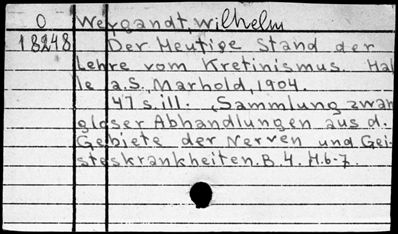 O Weygandt, Wilhelm
18248 Der Heutige Stand der
Lehre vom Kretinismus. Hal
le a.S., Marhold, 1904.
47 s. ill. „Sammlung zwan
gloser Abhandlungen aus d.
Gebiete der Nerven und Gei-
steskrankheiten. B. 4. H. 6-7.